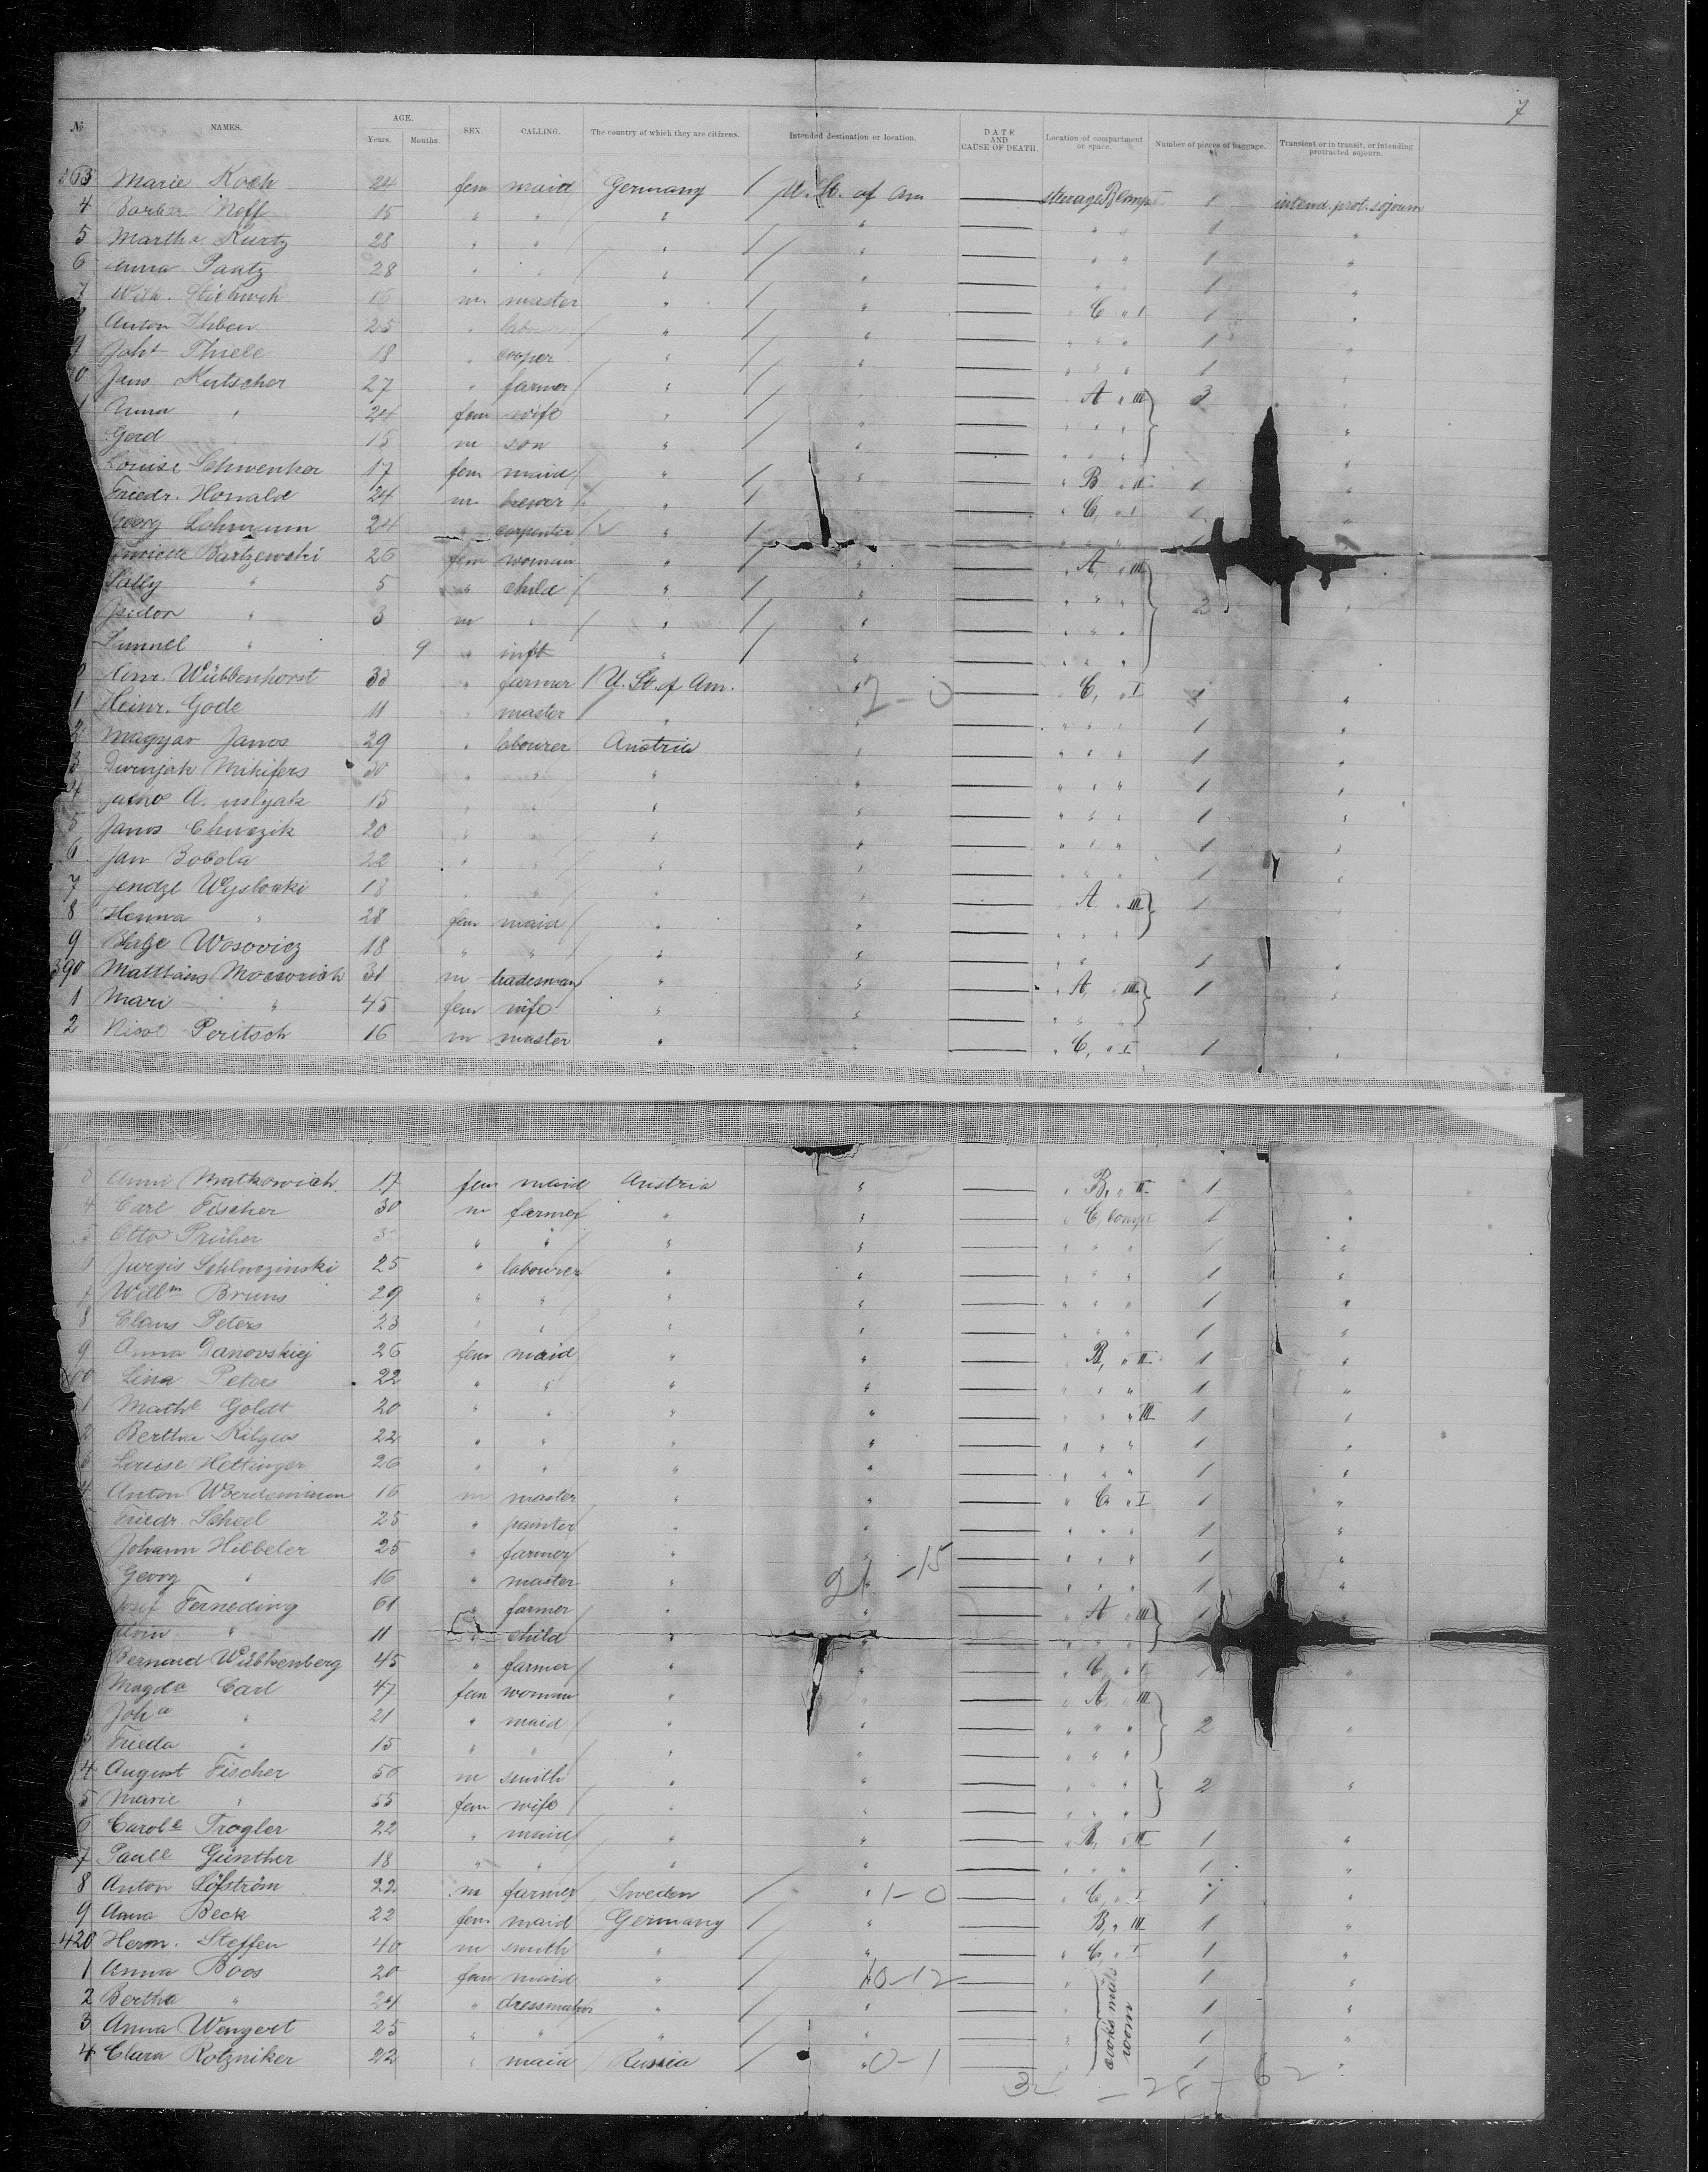 7
№ NAMES. AGE. Years. Months. SEX. CALLING. The country of which they are citizens. Intended destination or location. DATE AND CAUSE OF DEATH. Location of compartment or space. Number of pieces of baggage. Transient or in transit, or intending protracted sojourn.
363 Marie Koch 24 fem maid Germany / U. St. of Am — steerage B Comp 1 intend. prot. sojourn
4 Neff 15 " " " / " — " " 1 "
5 Martha Kurtz 28 " " " / " — " " 1 "
6 Anna Paatz 28 " " " / " — " " 1 "
7 Wilh. 16 m. master " / " — C " I 1 "
Anton 25 " labourer / " / " — " " " 1 "
9 Joht Thiele 18 " cooper " / " — " " " 1 "
70 Jans Kutscher 27 " farmer / " / " — " A " III } 3 "
1 Anna " 24 fem wife " / " — " " "
Gerd 15 m son " / " — " " " "
Louise Schwenker 17 fem maid / " / " — " B " II 1 "
Friedr. 24 m brewer / " / " — " C, " I 1 "
Georg Lohmann 24 " carpenter / " / " — " " "
Bartzewski 26 fem woman " / " — " A, " III }
Sally " 5 " child / " / " — " " " 2 "
Isidor " 3 m " / " / " — " " "
Samuel " 9 " inft " / " — " " "
Wübbenhorst 33 " farmer / U. St. of Am. " 2-0 — C, " I 1 "
1 Heinr. Gode 11 " master / " " — " " " 1 "
2 Magyar Janos 29 " labourer Austria " — " " " 1 "
3 Mikifers 30 " " " " — " " " 1 "
24 A. 15 " " " " — " " " 1 "
5 Janos 20 " " " " — " " " 1 "
6 Jan Bobola 22 " " " " — " " " 1 "
7 Jendzl 18 " " " " — A " III } 1 "
8 Henna " 28 fem maid / " " — " " "
9 Wosovicz 18 " " / " " — " " 1 "
390 Matthäus 31 m tradesman / " " — " A, " III } 1 "
1 Mari " 45 fem wife " " — " " "
2 Peritsch 16 m master " " — " C, " I 1 "
3 Anni Matkowich 17 fem maid Austria " — " B, " II 1 "
4 Carl Fischer 30 m farmer / " " — " C, Comp 1 "
5 Otto " " / " " — " " " 1 "
6 Jurgis 25 " labourer " " — " " " 1 "
Willm Bruns 29 " " / " " — " " " 1 "
8 Claus Peters 23 " " / " " — " " " 1 "
9 Anna Danovskiej 26 fem maid " " — B, " II 1 "
400 Lina Peters 22 " " / " " — " " " 1 "
1 Mathe Goldt 20 " " / " " — " " " III 1 "
2 Bertha Kilgus 22 " " / " " — " " " 1 "
3 Louise Hettinger 26 " " / " " — " " " 1 "
4 Anton 16 m master " " — " C, " I 1 "
Friedr. Scheel 25 " painter / " " — " " " 1 "
Johann Hilbeler 25 " farmer / " " — " " " 1 "
Georg " 16 " master " 21 -15 — " " " 1 "
Josef Ferneding 61 " farmer " " — " A " III } 1 "
" 11 " child " " — " " "
Bernard Wübkenberg 45 " farmer / " — " C, " I 1 "
Magda Carl 47 fem woman " " — " A, " III }
Joha " 21 " maid / " " — " " " 2 "
3 Frieda " 15 " " / " " — " " "
4 August Fischer 50 m smith " " — " " " } 2 "
5 Marie " 55 fem wife / " " — " " "
6 Carole Trogler 22 " maid / " " — " B, " II 1 "
7 Paule Günther 18 " " / " " — " " " 1 "
8 Anton Löfström 22 m farmer / Sweden / " 1-0 — " C, " I 1 "
9 Anna Beck 22 fem maid Germany / " — B, " III 1 "
420 Herm. Steffen 40 m smith " / " — " C, " I 1 "
1 Anna Boos 20 fem maid " / 10-12 — " 1 "
2 Bertha " 24 " dressmaker " / " — " cooks mats room 1 "
3 Anna Wengert 25 " " / " / " — " 1 "
4 Clara Rotzniker 22 " maid / Russia / " 0-1 — " 1 "
34 - 28 - 62